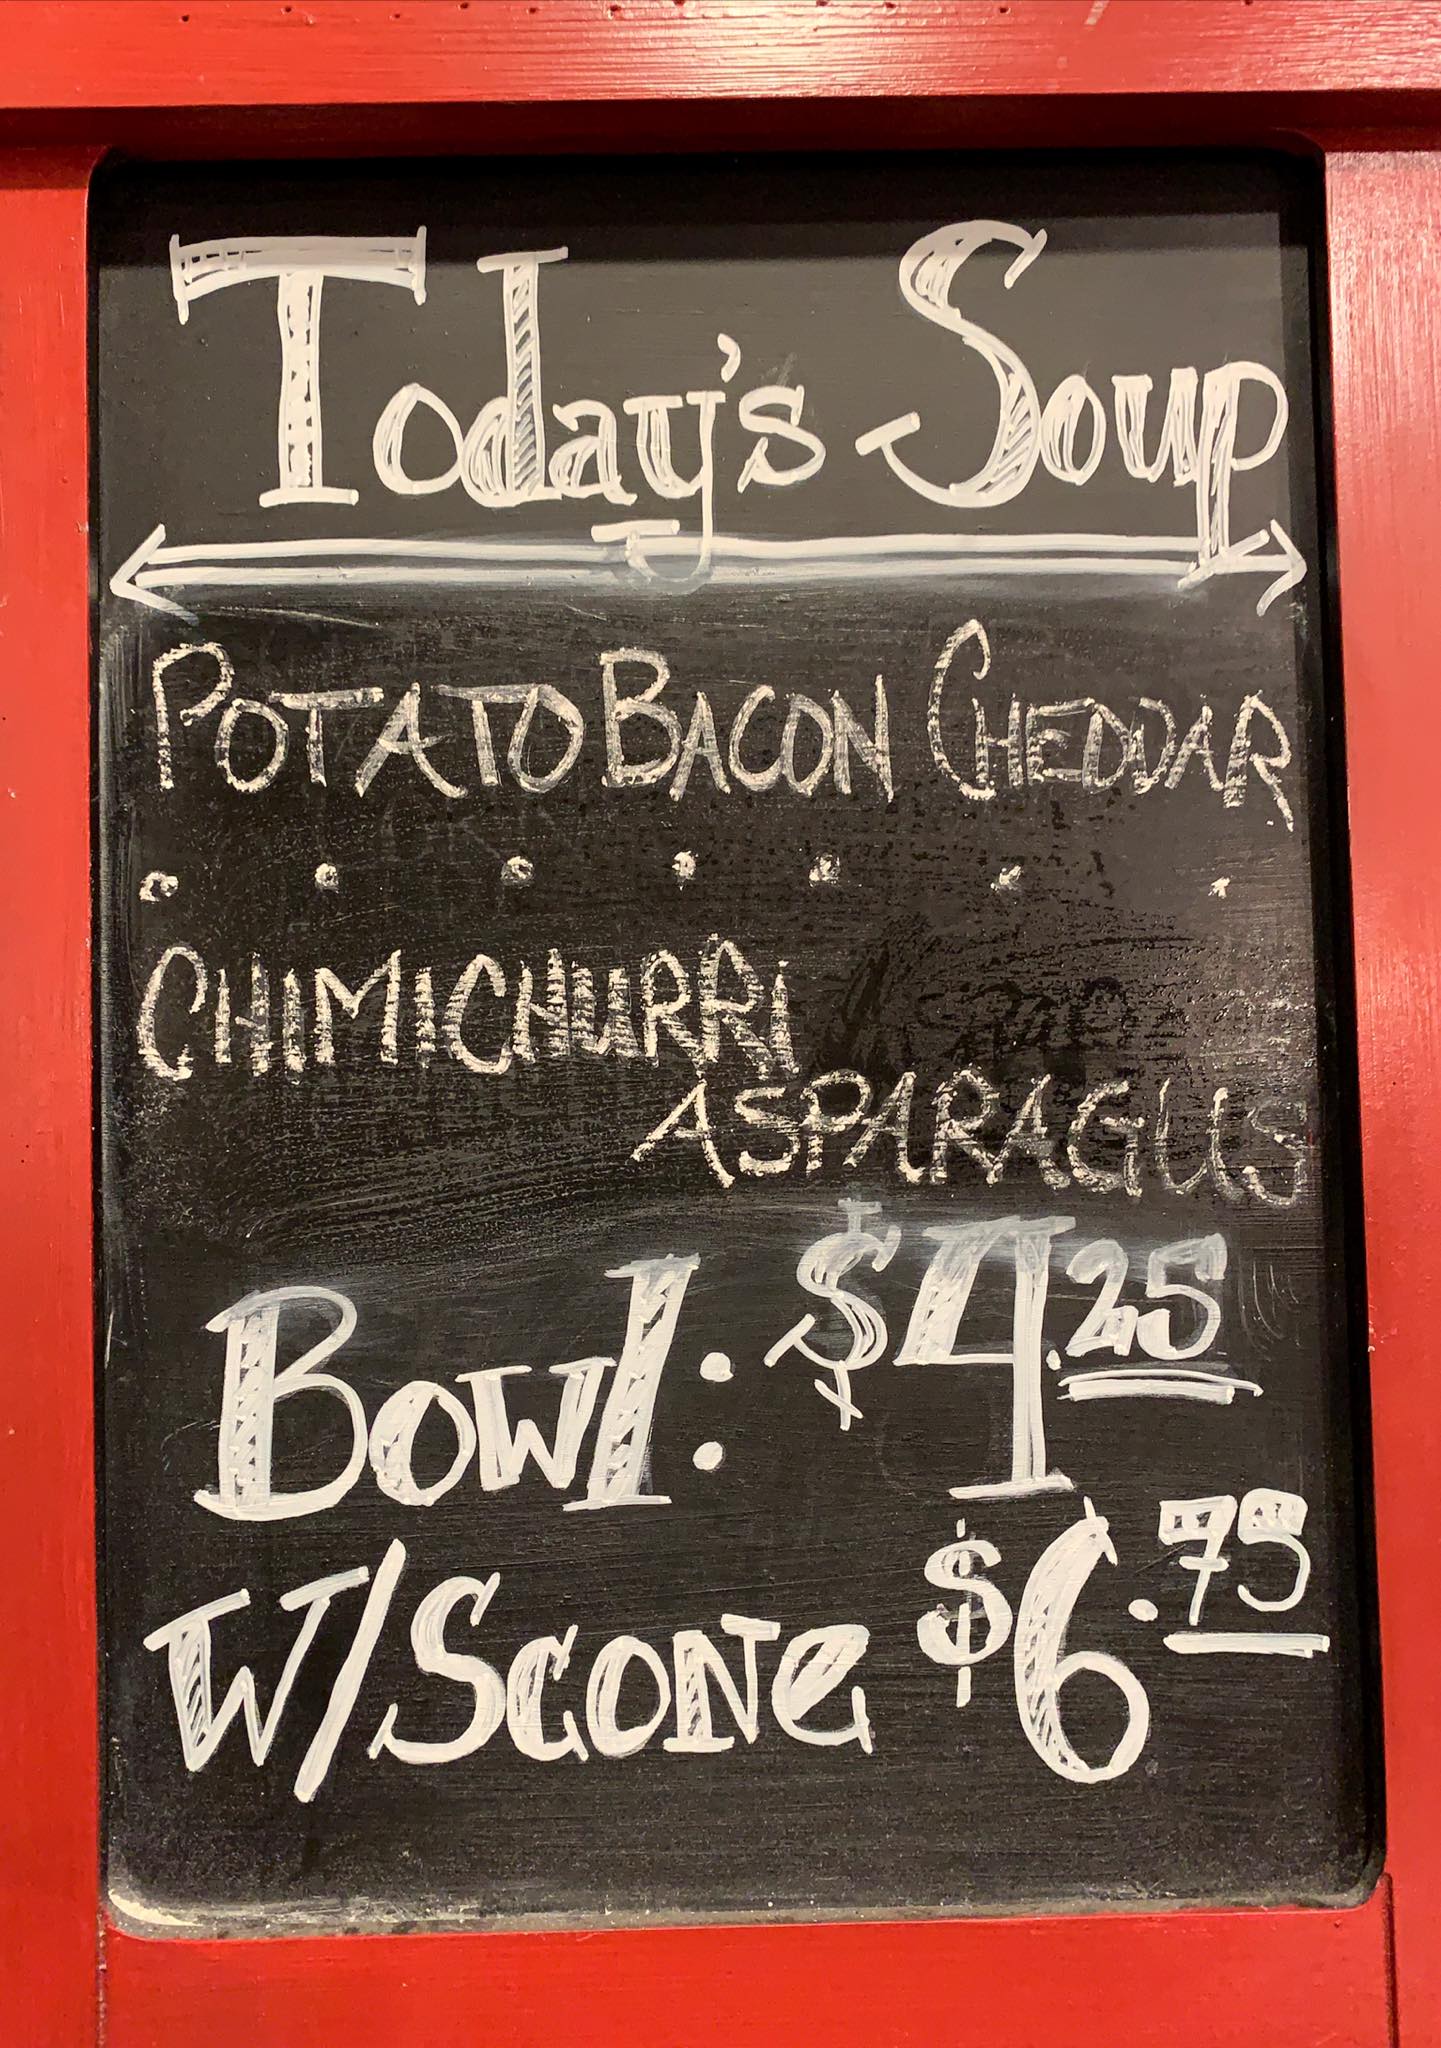 Today's Soup
POTATO BACON CHEDDAR
CHIMICHURRi
ASPARAGUS
Bowl: $4.25
W/Scone $6.75